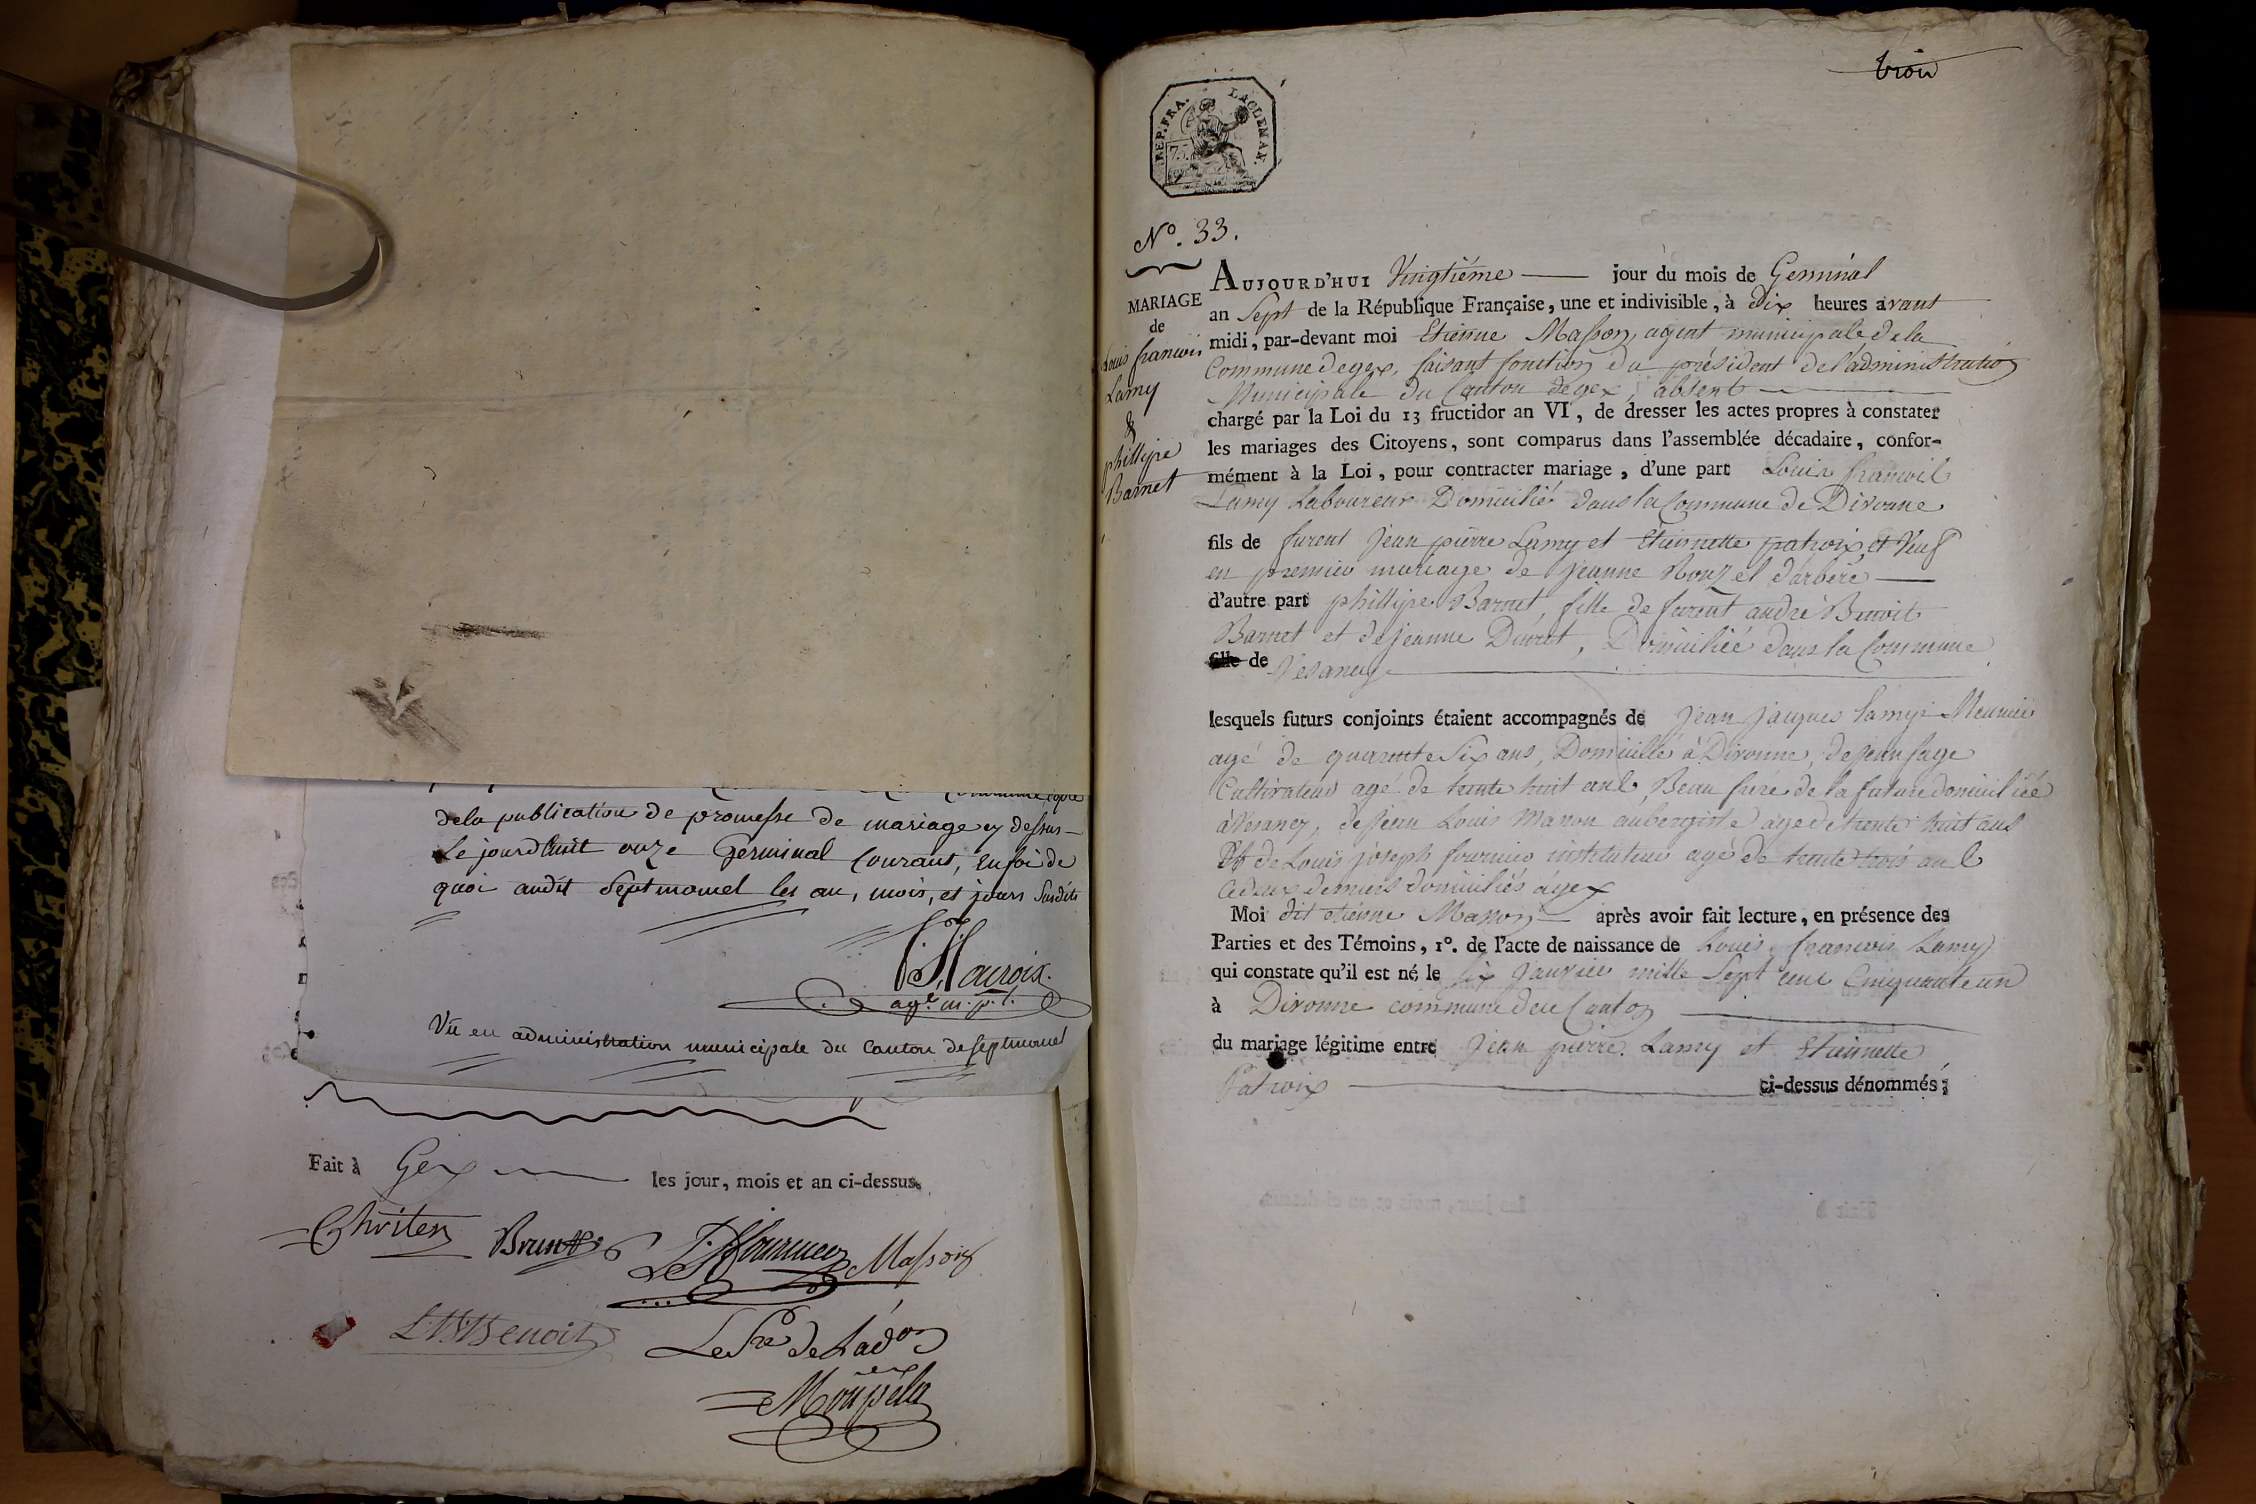 dela publication de promesse de mariage cy dessus
Le jourdhuit onze Germinal Courant, En foi de
quoi audit Septmoncel les an, mois, et jours susdits
agt. m. p.l.
Vû en administration municipale du Canton de septmoncel
Fait à Gex les jour, mois et an ci-dessus.
Chriten Brun LJfournier Masson
Benoit Le Sre de Lad.on
REP. FRA. 75
N°. 33.
MARIAGE
de
Louis francois
Lamy
&
phillipe
Barnet
AUJOURD'HUI Vingtiéme jour du mois de Germinal
an Sept de la République Française, une et indivisible, à dix heures avant
midi, par-devant moi Etienne Masson, agent municipale dela
Commune de gex, faisant fonction du président de l'administration
Municipale du Canton de gex, absent
chargé par la Loi du 13 fructidor an VI, de dresser les actes propres à constater
les mariages des Citoyens, sont comparus dans l'assemblée décadaire, confor-
mément à la Loi, pour contracter mariage, d'une part Louis francois
Lamy Laboureur Domicilié dans la Commune de Divonne
fils de furent Jean pierre Lamy et Etiennette patroix, et Veuf
en premier mariage de Jeanne Rouzel d'arbére
d'autre part phillipe Barnet, fille de furent andré Benoit
Barnet et de jeanne Ducret, Domiciliée dans la Commune
fille de Vesancy
lesquels futurs conjoints étaient accompagnés de Jean Jacques Lamy Meunier
agé de quarente Six ans, Domicilié à Divonne, de Jean sage
Cultivateur agé de trente huit ans, Beau frére de la future domiciliée
à Vesancy, de Jean Louis Manon aubergiste agé de trente huit ans
Et de Louis joseph fournier instituteur agé de trente trois ans
Ce deux derniers domiciliés à gex
Moi dit etienne Masson après avoir fait lecture, en présence des
Parties et des Témoins, 1°. de l'acte de naissance de Louis francois Lamy
qui constate qu'il est né le six Janvier mille Sept cent Cinquante un
à Divonne commune de ce Canton
du mariage légitime entre Jean pierre Lamy et Etiennette
Patroix ci-dessus dénommés;